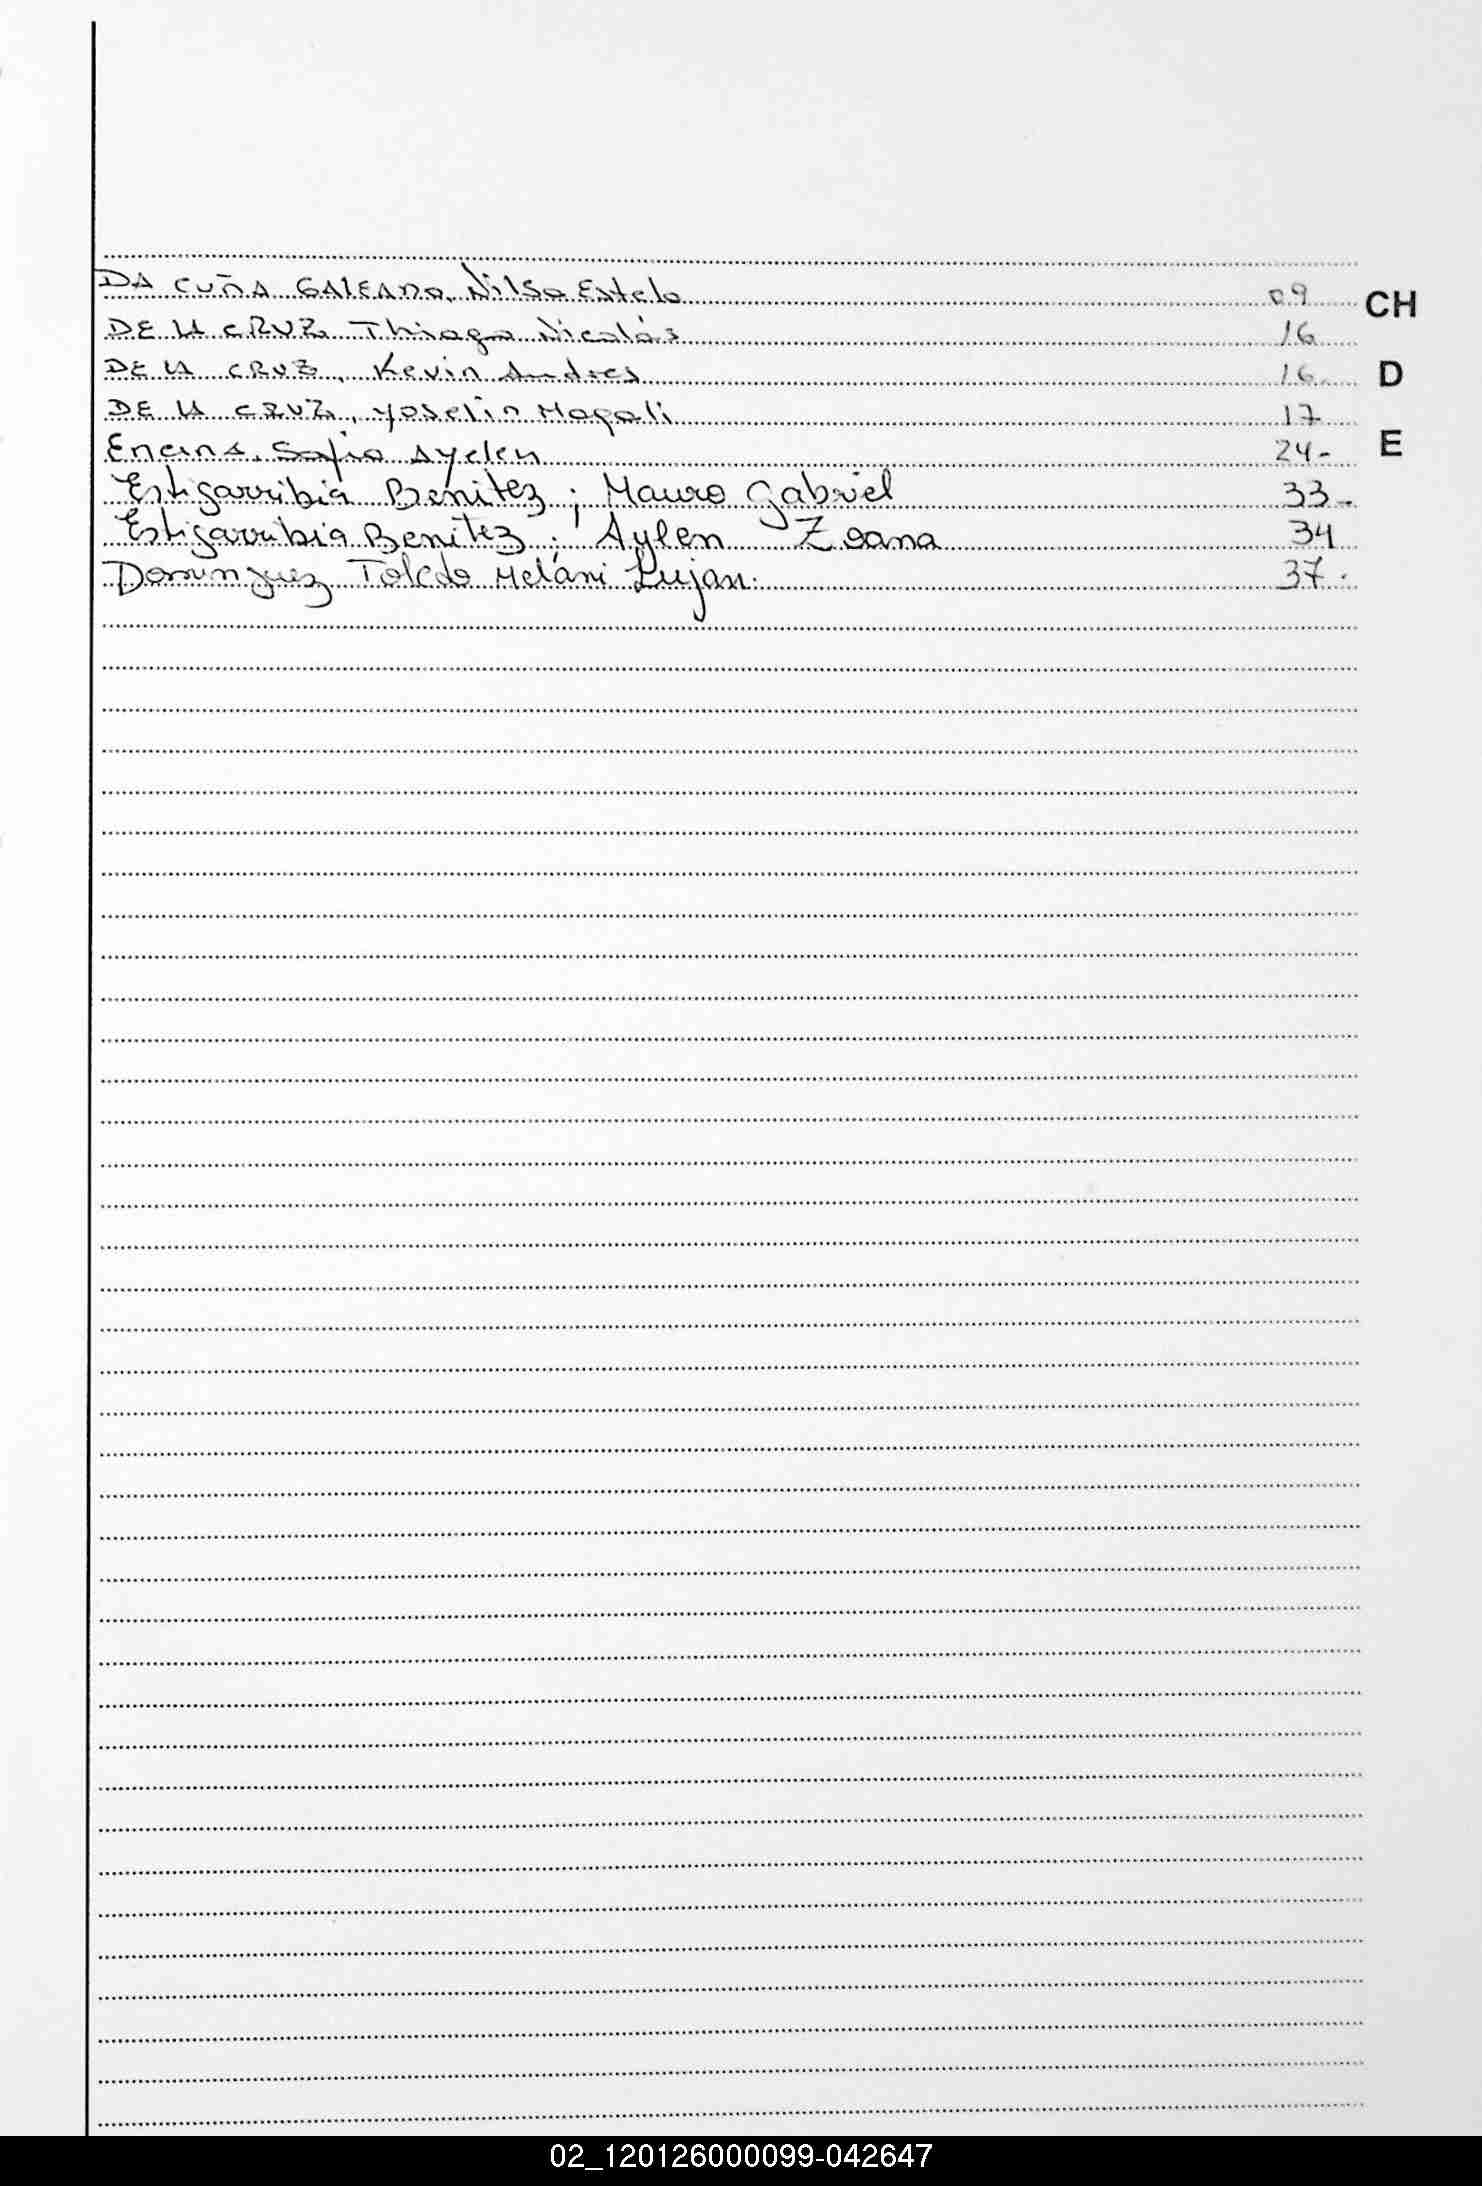 DA CUÑA GALEANO, Nilsa Estela 09 CH
DE LA CRUZ Thiago Nicolás 16
DE LA CRUZ, Kevin Andres 16 D
DE LA CRUZ, Yoselin Magali 17
Encina, Sofia Ayelen 24- E
Estigarribia Benitez; Mauro Gabriel 33-
Estigarribia Benitez; Aylen Zoana 34
Dominguez Toledo Melani Lujan. 37.
02_120126000099-042647